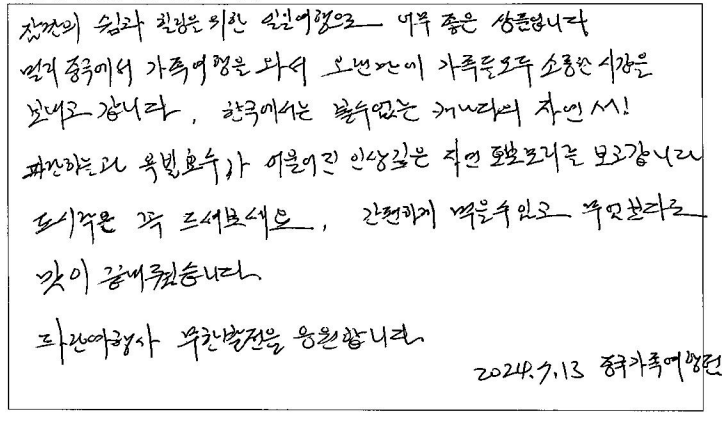 잠깐의 쉼과 힐링을 위한 일일여행으로 너무 좋은 상품입니다
멀리 중국에서 가족여행을 와서 오랜만에 가족들모두 소중한 시간을
보내고 갑니다, 한국에서는 볼수없는 캐나다의 자연 서!
파란하늘과 옥빛호수가 어울어진 인상깊은 자연 보고갑니다
도시락은 꼭 드셔보세요, 간편하게 먹을수있고 무엇보다도
맛이 끝내줬습니다.
파란여행사 무한발전을 응원합니다.
2024.7.13 중국가족여행편